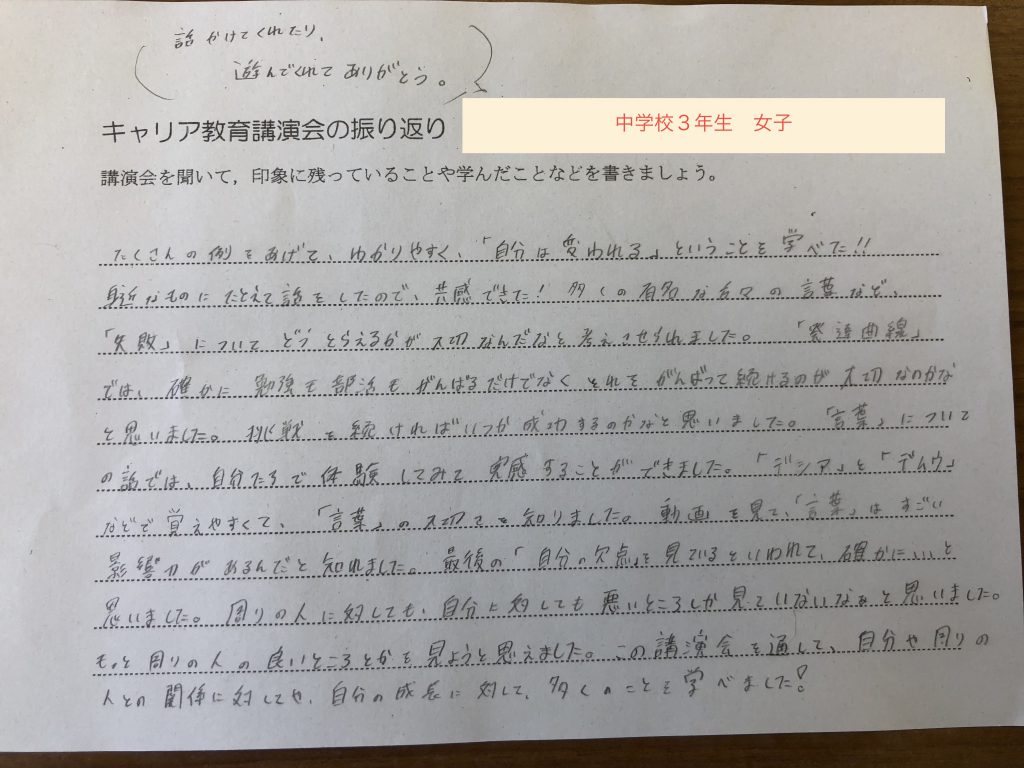 話かけてくれたり、
遊んでくれてありがとう。
キャリア教育講演会の振り返り
中学校３年生　女子
講演会を聞いて，印象に残っていることや学んだことなどを書きましょう。
たくさんの例をあげて、わかりやすく、「自分は変われる」ということを学べた!!
身近なものにたとえて話をしたので、共感できた！多くの有名な方々の言葉など、
「失敗」についてどうとらえるかが大切なんだなと考えさせられました。「発達曲線」
では、確かに勉強も部活もがんばるだけでなくそれをがんばって続けるのが大切なのかな
と思いました。挑戦を続ければいつか成功するのかなと思いました。「言葉」について
の話では、自分たちで体験してみて実感することができました。「デシア」と「デムウ」
などで覚えやすくて、「言葉」の大切さを知りました。動画を見て、「言葉」はすごい
影響力があるんだと知れました。最後の「自分の欠点」を見ているといわれて、確かに、、、と
思いました。周りの人に対しても、自分に対しても悪いところしか見ていないなぁと思いました。
もっと周りの人の良いところとかを見ようと思えました。この講演会を通して、自分や周りの
人との関係に対してや、自分の成長に対して、多くのことを学べました！